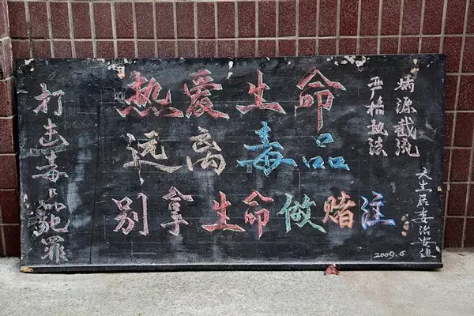 打击毒品犯罪
热爱生命
远离毒品
别拿生命做赌注
严格执法
堵源截流
居委治安组
2009.6